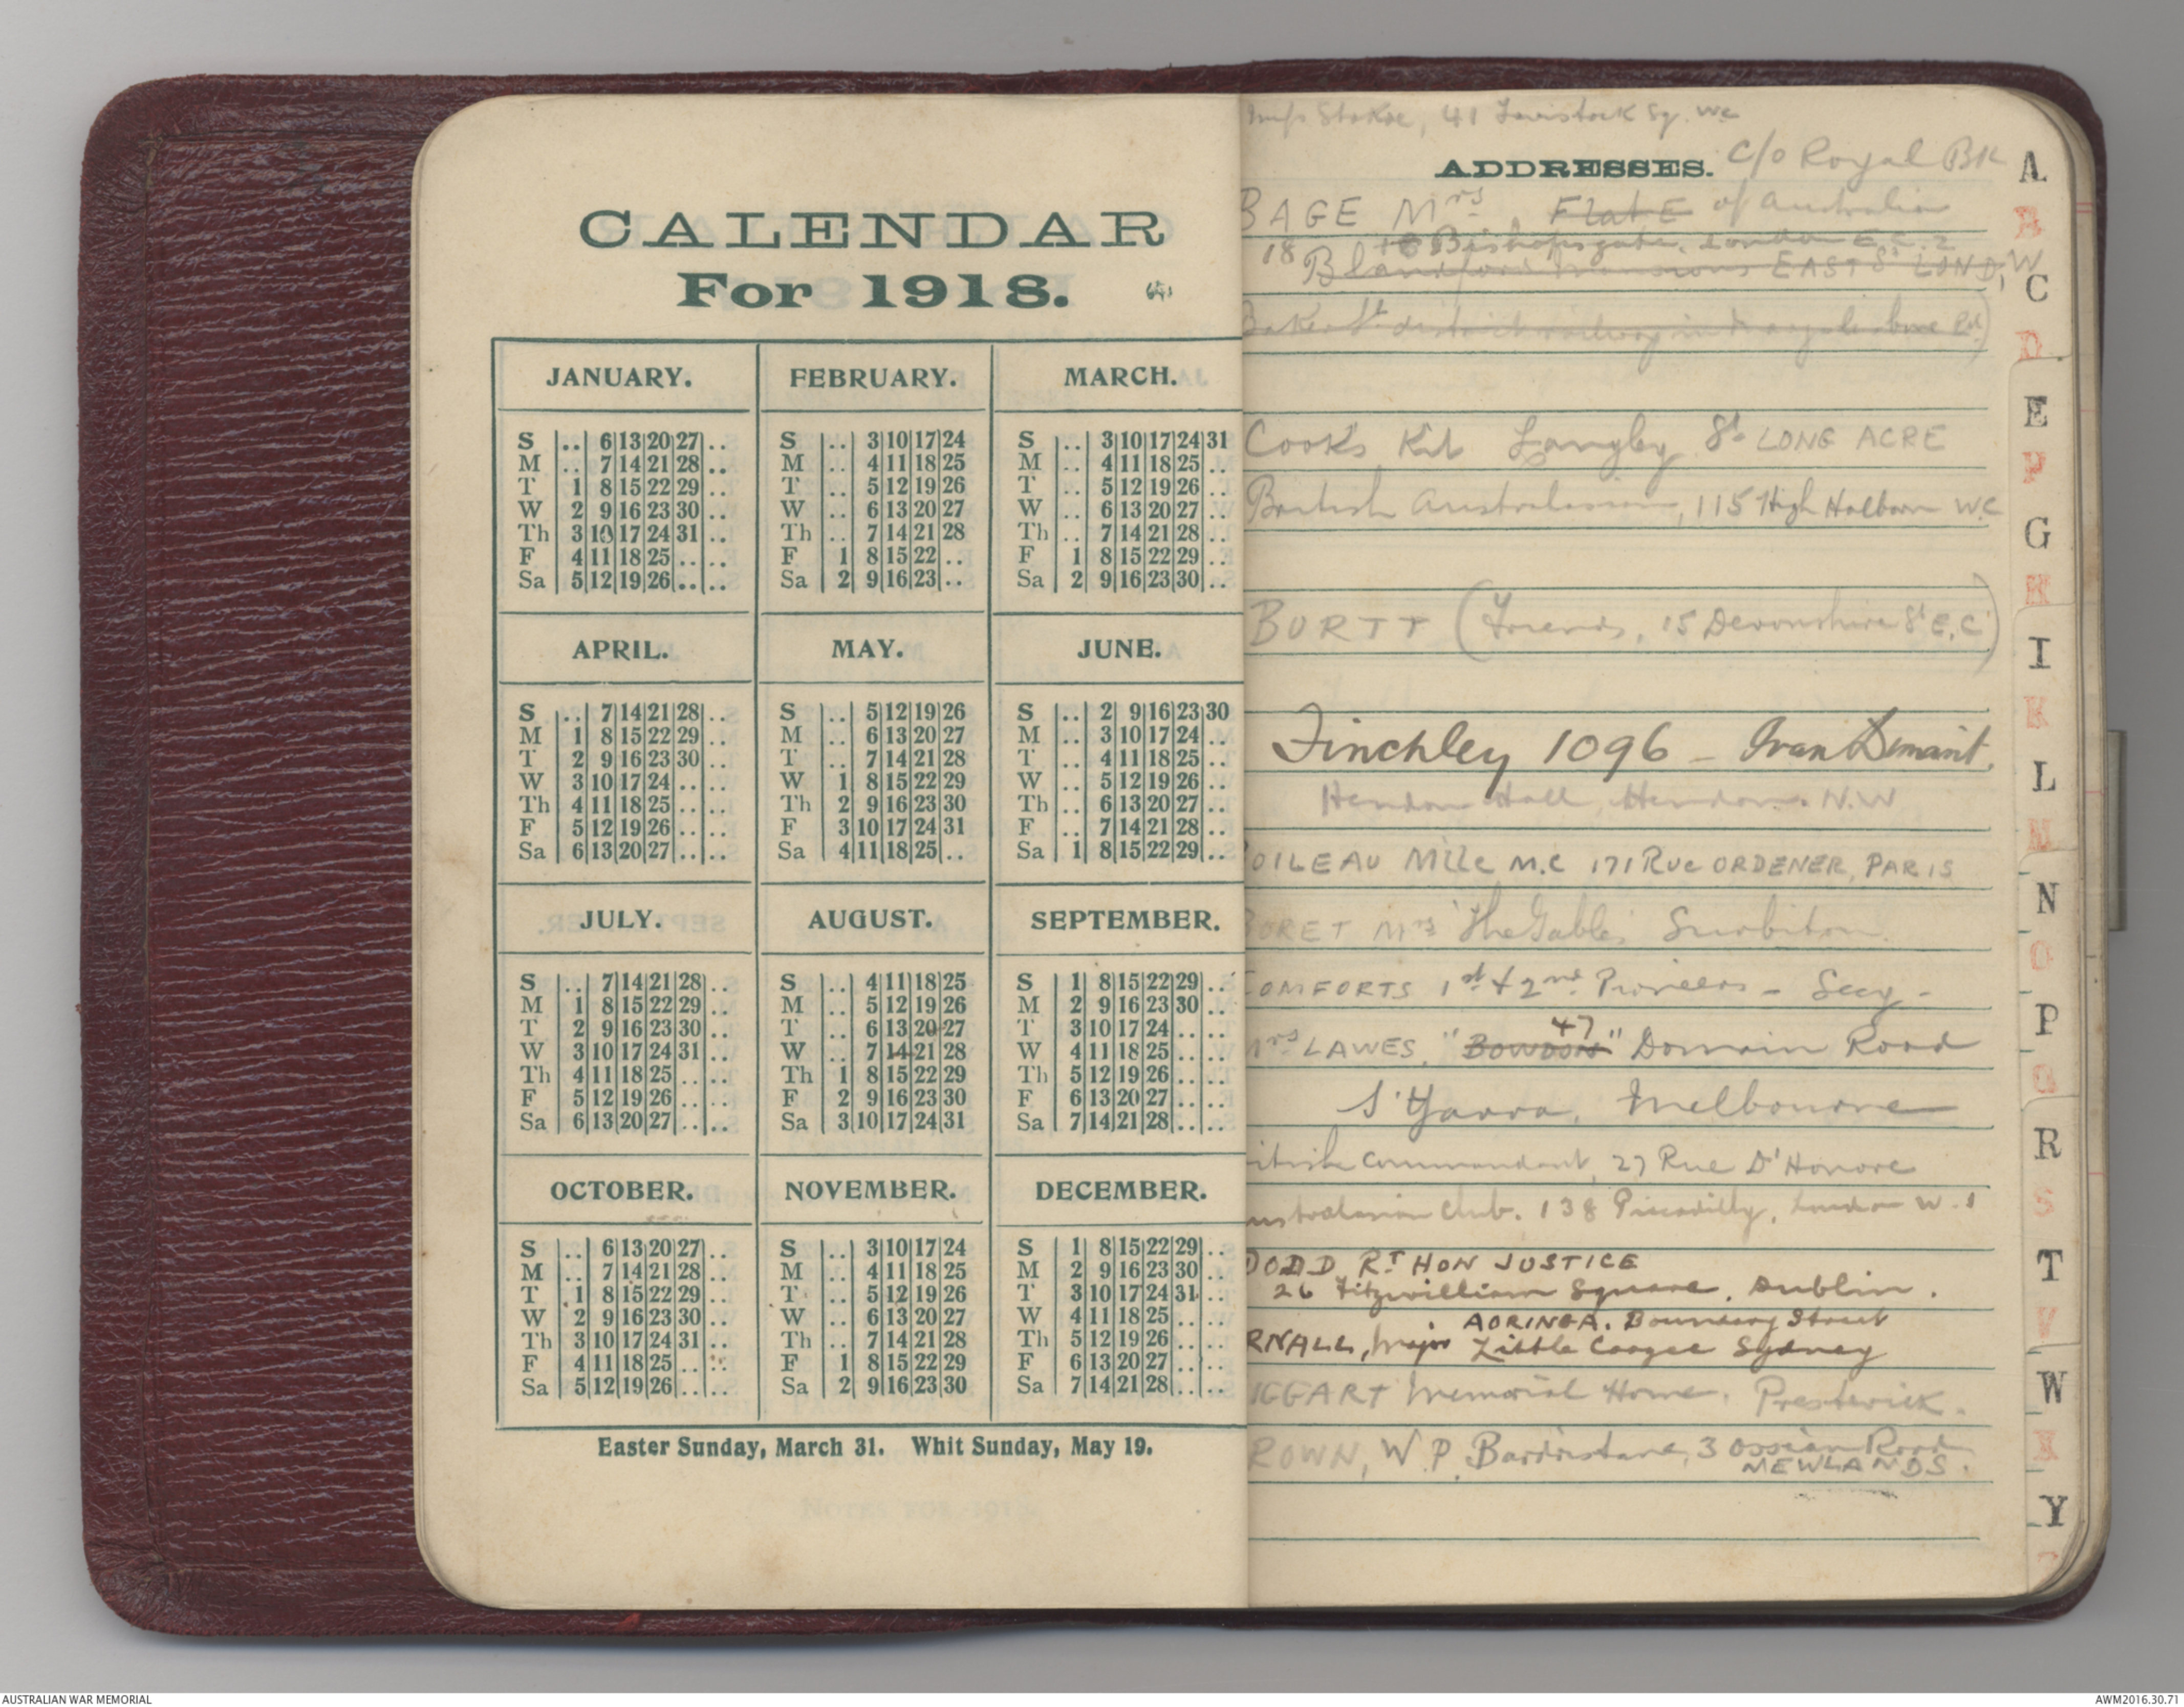 CALENDAR
For 1918.
JANUARY. FEBRUARY. MARCH.
S .. 6 13 20 27 .. S .. 3 10 17 24 S .. 3 10 17 24 31
M .. 7 14 21 28 .. M .. 4 11 18 25 M .. 4 11 18 25 ..
T 1 8 15 22 29 .. T .. 5 12 19 26 T .. 5 12 19 26 ..
W 2 9 16 23 30 .. W .. 6 13 20 27 W .. 6 13 20 27 ..
Th 3 10 17 24 31 .. Th .. 7 14 21 28 Th .. 7 14 21 28 ..
F 4 11 18 25 .. .. F 1 8 15 22 .. F 1 8 15 22 29 ..
Sa 5 12 19 26 .. .. Sa 2 9 16 23 .. Sa 2 9 16 23 30 ..
APRIL. MAY. JUNE.
S .. 7 14 21 28 .. S .. 5 12 19 26 S .. 2 9 16 23 30
M 1 8 15 22 29 .. M .. 6 13 20 27 M .. 3 10 17 24 ..
T 2 9 16 23 30 .. T .. 7 14 21 28 T .. 4 11 18 25 ..
W 3 10 17 24 .. .. W 1 8 15 22 29 W .. 5 12 19 26 ..
Th 4 11 18 25 .. .. Th 2 9 16 23 30 Th .. 6 13 20 27 ..
F 5 12 19 26 .. .. F 3 10 17 24 31 F .. 7 14 21 28 ..
Sa 6 13 20 27 .. .. Sa 4 11 18 25 .. Sa 1 8 15 22 29 ..
JULY. AUGUST. SEPTEMBER.
S .. 7 14 21 28 .. S .. 4 11 18 25 S 1 8 15 22 29 ..
M 1 8 15 22 29 .. M .. 5 12 19 26 M 2 9 16 23 30 ..
T 2 9 16 23 30 .. T .. 6 13 20 27 T 3 10 17 24 .. ..
W 3 10 17 24 31 .. W .. 7 14 21 28 W 4 11 18 25 .. ..
Th 4 11 18 25 .. .. Th 1 8 15 22 29 Th 5 12 19 26 .. ..
F 5 12 19 26 .. .. F 2 9 16 23 30 F 6 13 20 27 .. ..
Sa 6 13 20 27 .. .. Sa 3 10 17 24 31 Sa 7 14 21 28 .. ..
OCTOBER. NOVEMBER. DECEMBER.
S .. 6 13 20 27 .. S .. 3 10 17 24 S 1 8 15 22 29 ..
M .. 7 14 21 28 .. M .. 4 11 18 25 M 2 9 16 23 30 ..
T 1 8 15 22 29 .. T .. 5 12 19 26 T 3 10 17 24 31 ..
W 2 9 16 23 30 .. W .. 6 13 20 27 W 4 11 18 25 .. ..
Th 3 10 17 24 31 .. Th .. 7 14 21 28 Th 5 12 19 26 .. ..
F 4 11 18 25 .. .. F 1 8 15 22 29 F 6 13 20 27 .. ..
Sa 5 12 19 26 .. .. Sa 2 9 16 23 30 Sa 7 14 21 28 .. ..
Easter Sunday, March 31. Whit Sunday, May 19.
Miss Stokoe, 41 Tavistock Sq. WC
ADDRESSES. C/o Royal BK
BAGE Mrs Flat E of Australia
18 Bishopsgate. London E.C. 2
Blandford Mansions EAST St LOND, W
Baker St district railway in Marylebone Rd)
Cook's Kit Langley St LONG ACRE
British Australasian, 115 High Holborn W.C
BURTT (Friends, 15 Devonshire St E.C)
Finchley 1096 - Ivan
Hendon Hall, Hendon. N.W
OILEAU Mlle M.C 171 Rue ORDENER, PARIS
BORET Mrs The Gables Surbiton.
COMFORTS 1st & 2nd Pioneers - Secy -
Mrs LAWES, "Bowdon" 47 Domain Road
S' Yarra, Melbourne
itish Commandant, 27 Rue D'Honore
ustralasian Club. 138 Piccadilly, London W.1
DODD RT HON JUSTICE
26 Fitzwilliam Square, Dublin.
AORINGA. Boundary Street
RNALL, Major Little Coogee Sydney
IGGART Memorial Home. Prestwick.
ROWN, W.P. 3 Ossian Road
NEWLANDS.
A
B
C
D
E
F
G
H
I
K
L
M
N
O
P
Q
R
S
T
V
W
X
Y
AUSTRALIAN WAR MEMORIAL
AWM2016.30.71